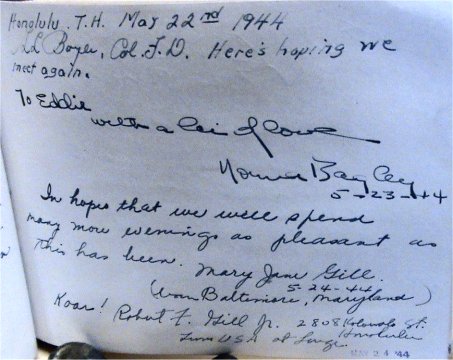 Honolulu, T.H. May 22nd 1944
Boyer, Col. F.D. Here's hoping we
meet again.
To Eddie
with a lei of love
Norma Bagley
5-23-44
In hopes that we will spend
many more evenings as pleasant as
this has been. Mary Jane Gill.
5-24-44
(From Baltimore, Maryland)
Koar! Robert F. Gill Jr. 2808 St.
Honolulu
USA at Large
MAY 24 '44